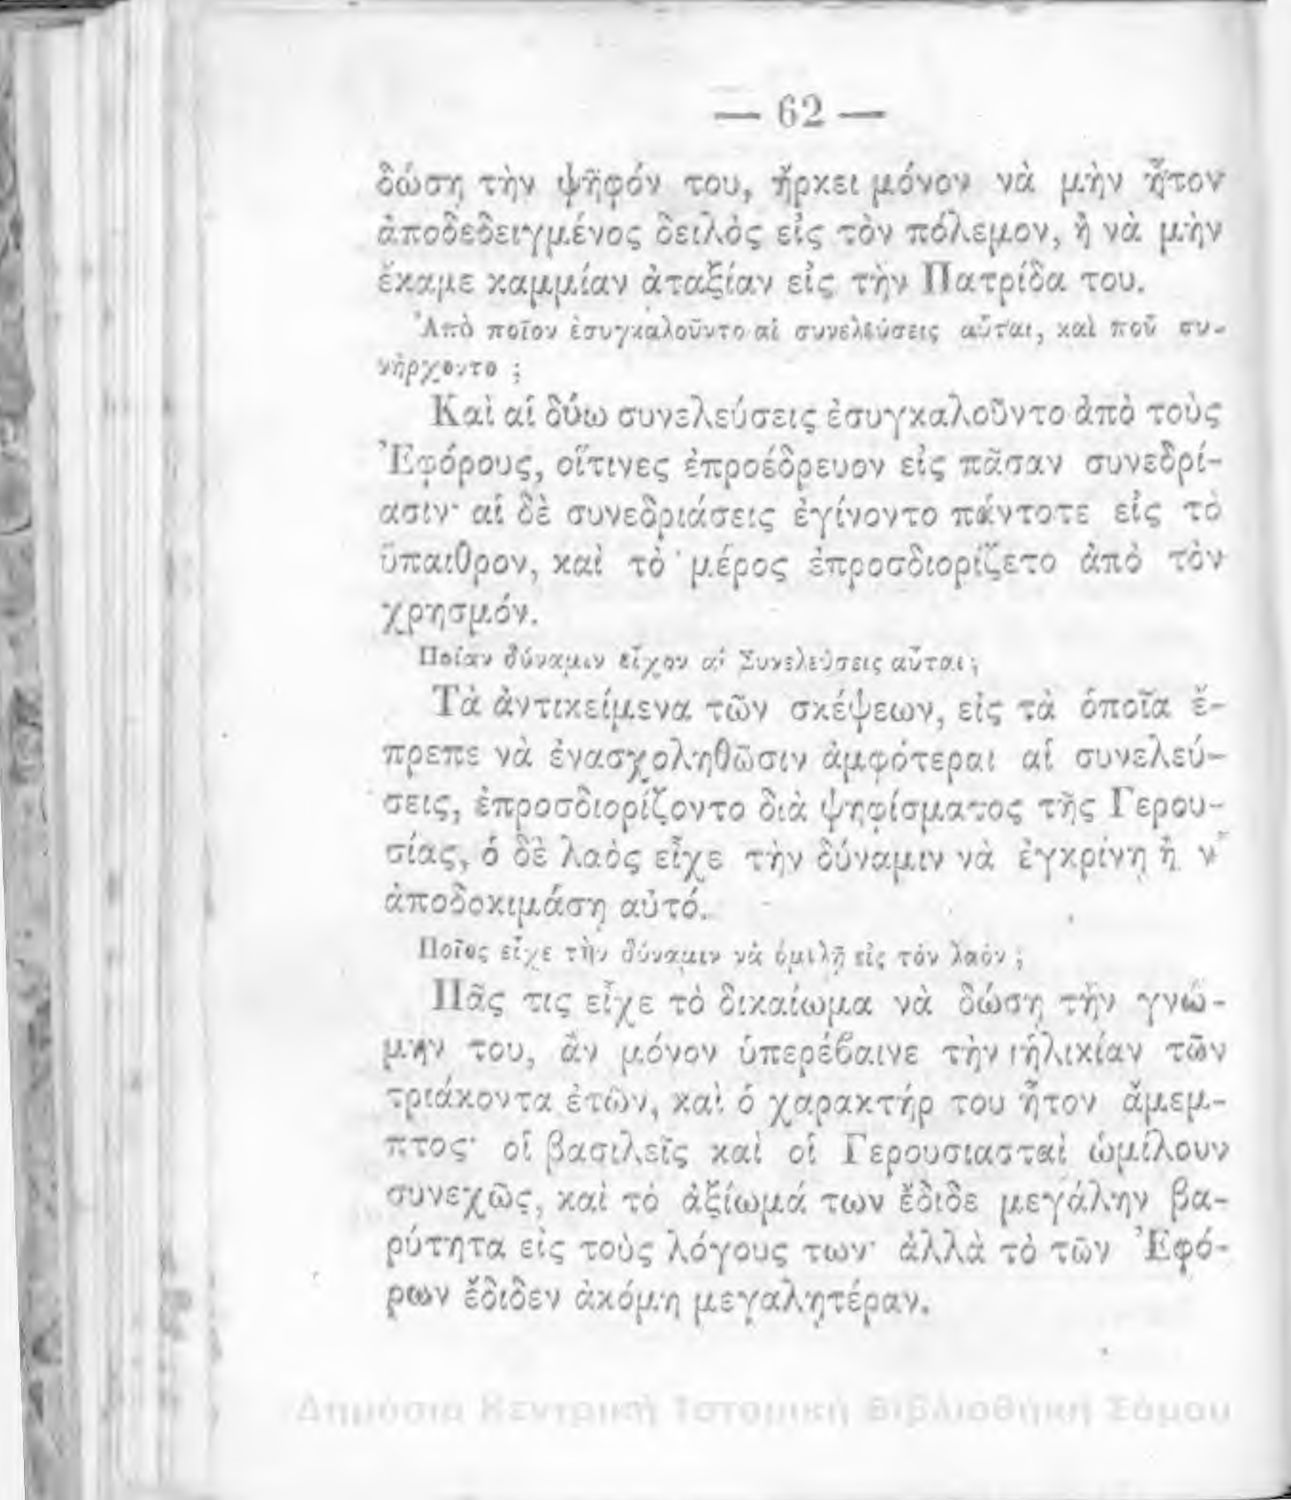 — 62 —
δώσῃ τὴν ψῆφόν του, ἤρκει μόνον νὰ μὴν ἦτον
ἀποδεδειγμένος δειλὸς εἰς τὸν πόλεμον, ἢ νὰ μὴν
ἔκαμε καμμίαν ἀταξίαν εἰς τὴν Πατρίδα του.
Ἀπὸ ποῖον ἐσυγκαλοῦντο αἱ συνελεύσεις αὗται, καὶ ποῦ συ-
νήρχοντο ;
Καὶ αἱ δύω συνελεύσεις ἐσυγκαλοῦντο ἀπὸ τοὺς
Ἐφόρους, οἵτινες ἐπροέδρευον εἰς πᾶσαν συνεδρί-
ασιν· αἱ δὲ συνεδριάσεις ἐγίνοντο πάντοτε εἰς τὸ
ὕπαιθρον, καὶ τὸ μέρος ἐπροσδιορίζετο ἀπὸ τὸν
χρησμόν.
Ποίαν δύναμιν εἶχον αἱ Συνελεύσεις αὗται ;
Τὰ ἀντικείμενα τῶν σκέψεων, εἰς τὰ ὁποῖα ἔ-
πρεπε νὰ ἐνασχοληθῶσιν ἀμφότεραι αἱ συνελεύ-
σεις, ἐπροσδιορίζοντο διὰ ψηφίσματος τῆς Γερου-
σίας, ὁ δὲ λαὸς εἶχε τὴν δύναμιν νὰ ἐγκρίνῃ ἢ ν'
ἀποδοκιμάσῃ αὐτό.
Ποῖος εἶχε τὴν δύναμιν νὰ ὁμιλῇ εἰς τὸν λαόν ;
Πᾶς τις εἶχε τὸ δικαίωμα νὰ δώσῃ τὴν γνώ-
μην του, ἂν μόνον ὑπερέβαινε τὴν ἡλικίαν τῶν
τριάκοντα ἐτῶν, καὶ ὁ χαρακτήρ του ἦτον ἄμεμ-
πτος· οἱ βασιλεῖς καὶ οἱ Γερουσιασταὶ ὡμίλουν
συνεχῶς, καὶ τὸ ἀξίωμά των ἔδιδε μεγάλην βα-
ρύτητα εἰς τοὺς λόγους των· ἀλλὰ τὸ τῶν Ἐφό-
ρων ἔδιδεν ἀκόμη μεγαλητέραν.
Δημόσια Κεντρική Ιστορική Βιβλιοθήκη Σάμου